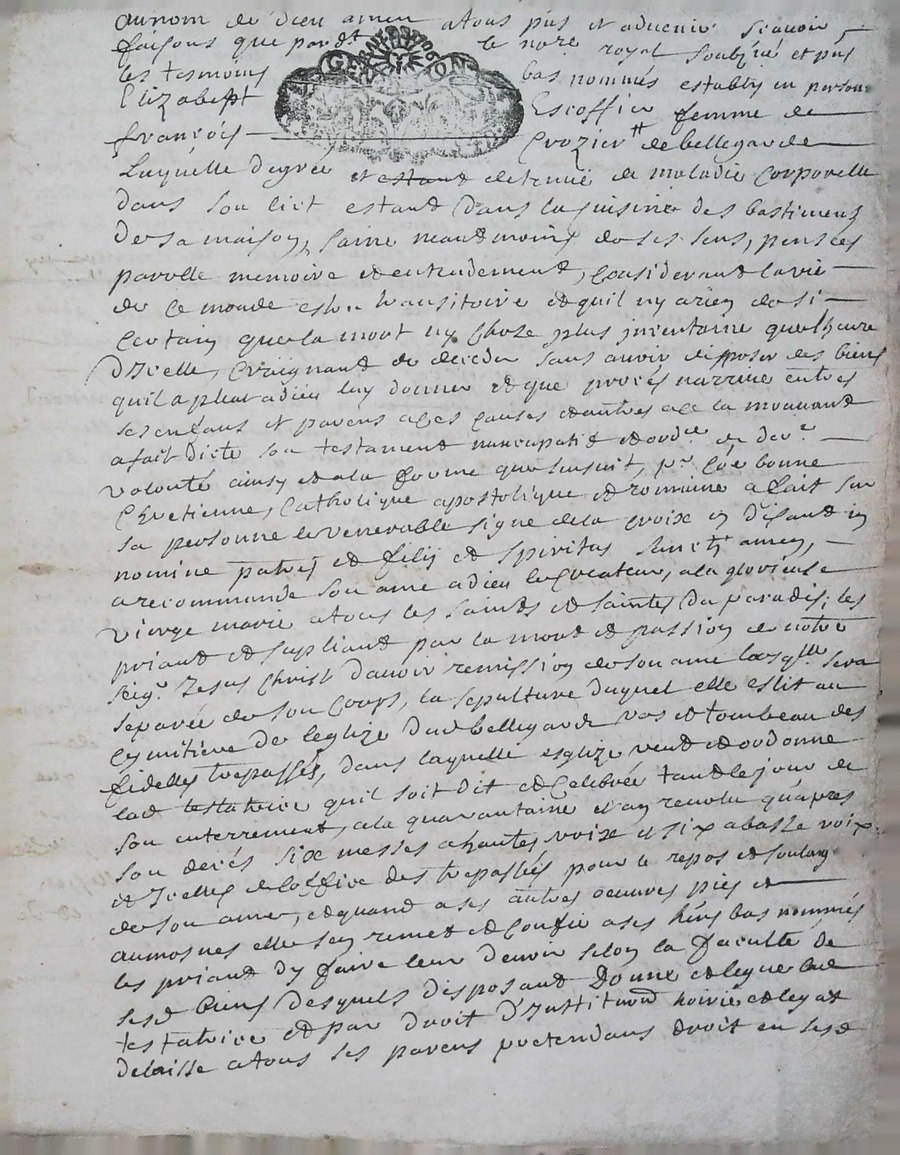 au nom de dieu amen atous pns et advenir scavoir
faisons que pardt le nore royal soubzné et pns
les tesmoins bas nommés establie en person
Elizabeht Escoffier femme de
françois Crozier de bellegarde
Laquelle degrée et estant detenue de maladie corporelle
dans son lict estant dans la cuisine des bastiments
de sa maison, saine neandmoins de ses sens, pensées
parolle memoire et entendement, considerant la vie
de ce monde estre transitoire et quil ny a rien de si
certain que la mort ny chose plus incertaine que lheure
d'Icelle, craignant de deceder sans avoir disposer des biens
quil a pleut a dieu luy donner et que procés narrive entres
ses enfans et parens a ces causes et autres a ce la mouvand
a fait dicte son testament nuncupatif et ordre de derre
volonté ainsy et a la forme que sensuit, pr coe bonne
Chretienne, Catholique apostolique et romaine a fait sur
sa personne le venerable signe de la croix en disand in
nomine patris et filij et spiritus sancti amen,
a recommandé son ame a dieu le Createur, a la glorieuse
vierge marie a tous les saints et saintes du paradis, les
priant et supliant par la mort et passion de notre
seigr Jesus Christ d'avoir remission de son ame lorsqlle sera
separée de son corps, la sepulture duquel elle eslit au
cymitiere de leglize dud bellegarde vas et tombeau des
fidelles trepassés, dans laquelle esglize veut et ordonne
lad testatrice quil soit dit et celebrée tant le jour de
son enterrement, a la quarantaine et an revolu quapres
son decés six messes a hautes voix et six a basse voix
et Icelles de loffice des trepassés pour le repos et soulag
de son ame, et quand a ses autres oeuvres pies et
aumosnes elle sen remet et confie a ses hers bas nommés
les priant dy faire leur devoir selon la faculté de
sesd biens desquels disposant Donne et legue lad
testatrice et par droit D'Institution hoirie et legat
delaisse a tous ses parens pretendans droit en sesd